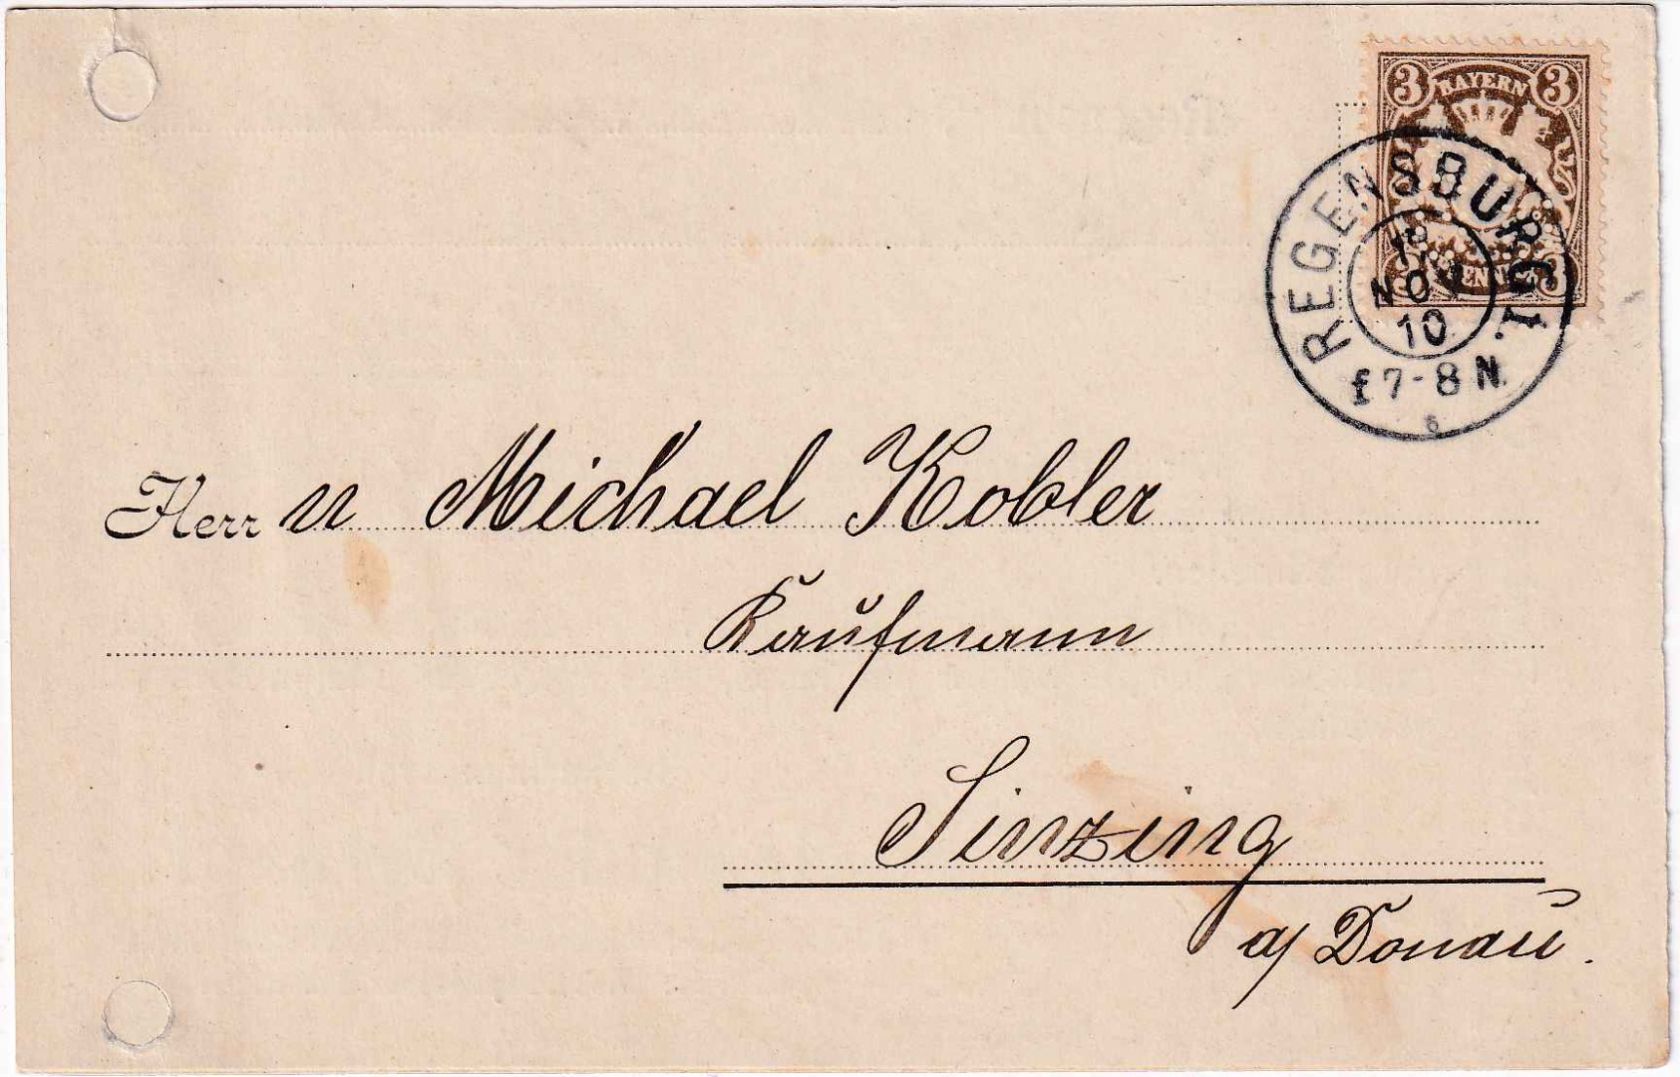 3 BAYERN 3
REGENSBURG I.
1. NOV 10
f 7-8 N.
6
3 PFENNIG 3
Herrn Michael Kobler
Kaufmann
Sinzing
a/ Donau.